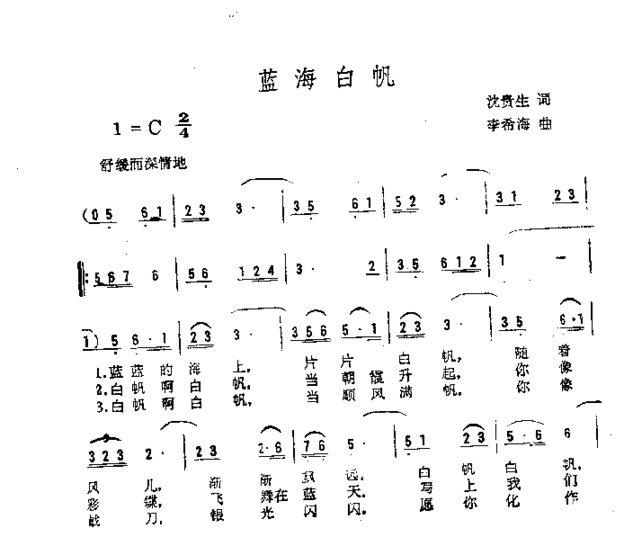 蓝海白帆
沈贵生 词
1 = C 2/4
李希海 曲
舒缓而深情地
(0 5 6 1 | 2 3 3 · | 3 5 6 1 | 5 2 3 · | 3 1 2 3 |
5 6 7 6 | 5 6 1 2 4 | 3 · 2 | 3 5 6 1 2 | 1 - |
1) 5 6 · 1 | 2 3 3 · | 3 5 6 5 · 1 | 2 3 3 · | 3 5 6 · 1 |
1.蓝 蓝 的 海 上, 片 片 白 帆, 随 着
2.白 帆 啊 白 帆, 当 朝 霞 升 起, 你 像
3.白 帆 啊 白 帆, 当 顺 风 满 帆, 你 像
3 2 3 2 · | 2 3 2 · 6 | 7 6 5 · | 5 1 2 3 | 5 · 6 6 |
风 儿, 渐 渐 飘 远, 白 帆 白 帆,
彩 蝶, 飞 舞 在 蓝 天, 写 上 我 们
战 刀, 银 光 闪 闪, 愿 你 化 作